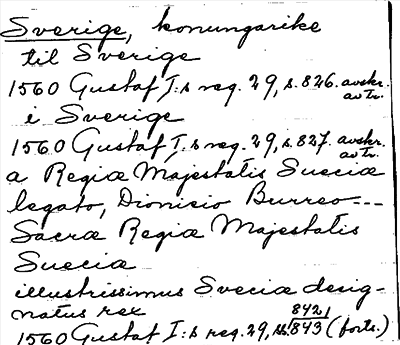 Sverige, konungarike
til Sverige
1560 Gustaf I:s reg. 29, s. 826. avskr. av tr.
i Sverige
1560 Gustaf I:s reg. 29, s. 827. avskr. av tr.
a Regiæ Majestatis Sueciæ
legato, Dionicio Burreo---
Sacræ Regiæ Majestatis
Sueciæ
illustrissimus Sveciæ desig-
natus rex
1560 Gustaf I:s reg. 29, ss. 842, 843 (forts.)